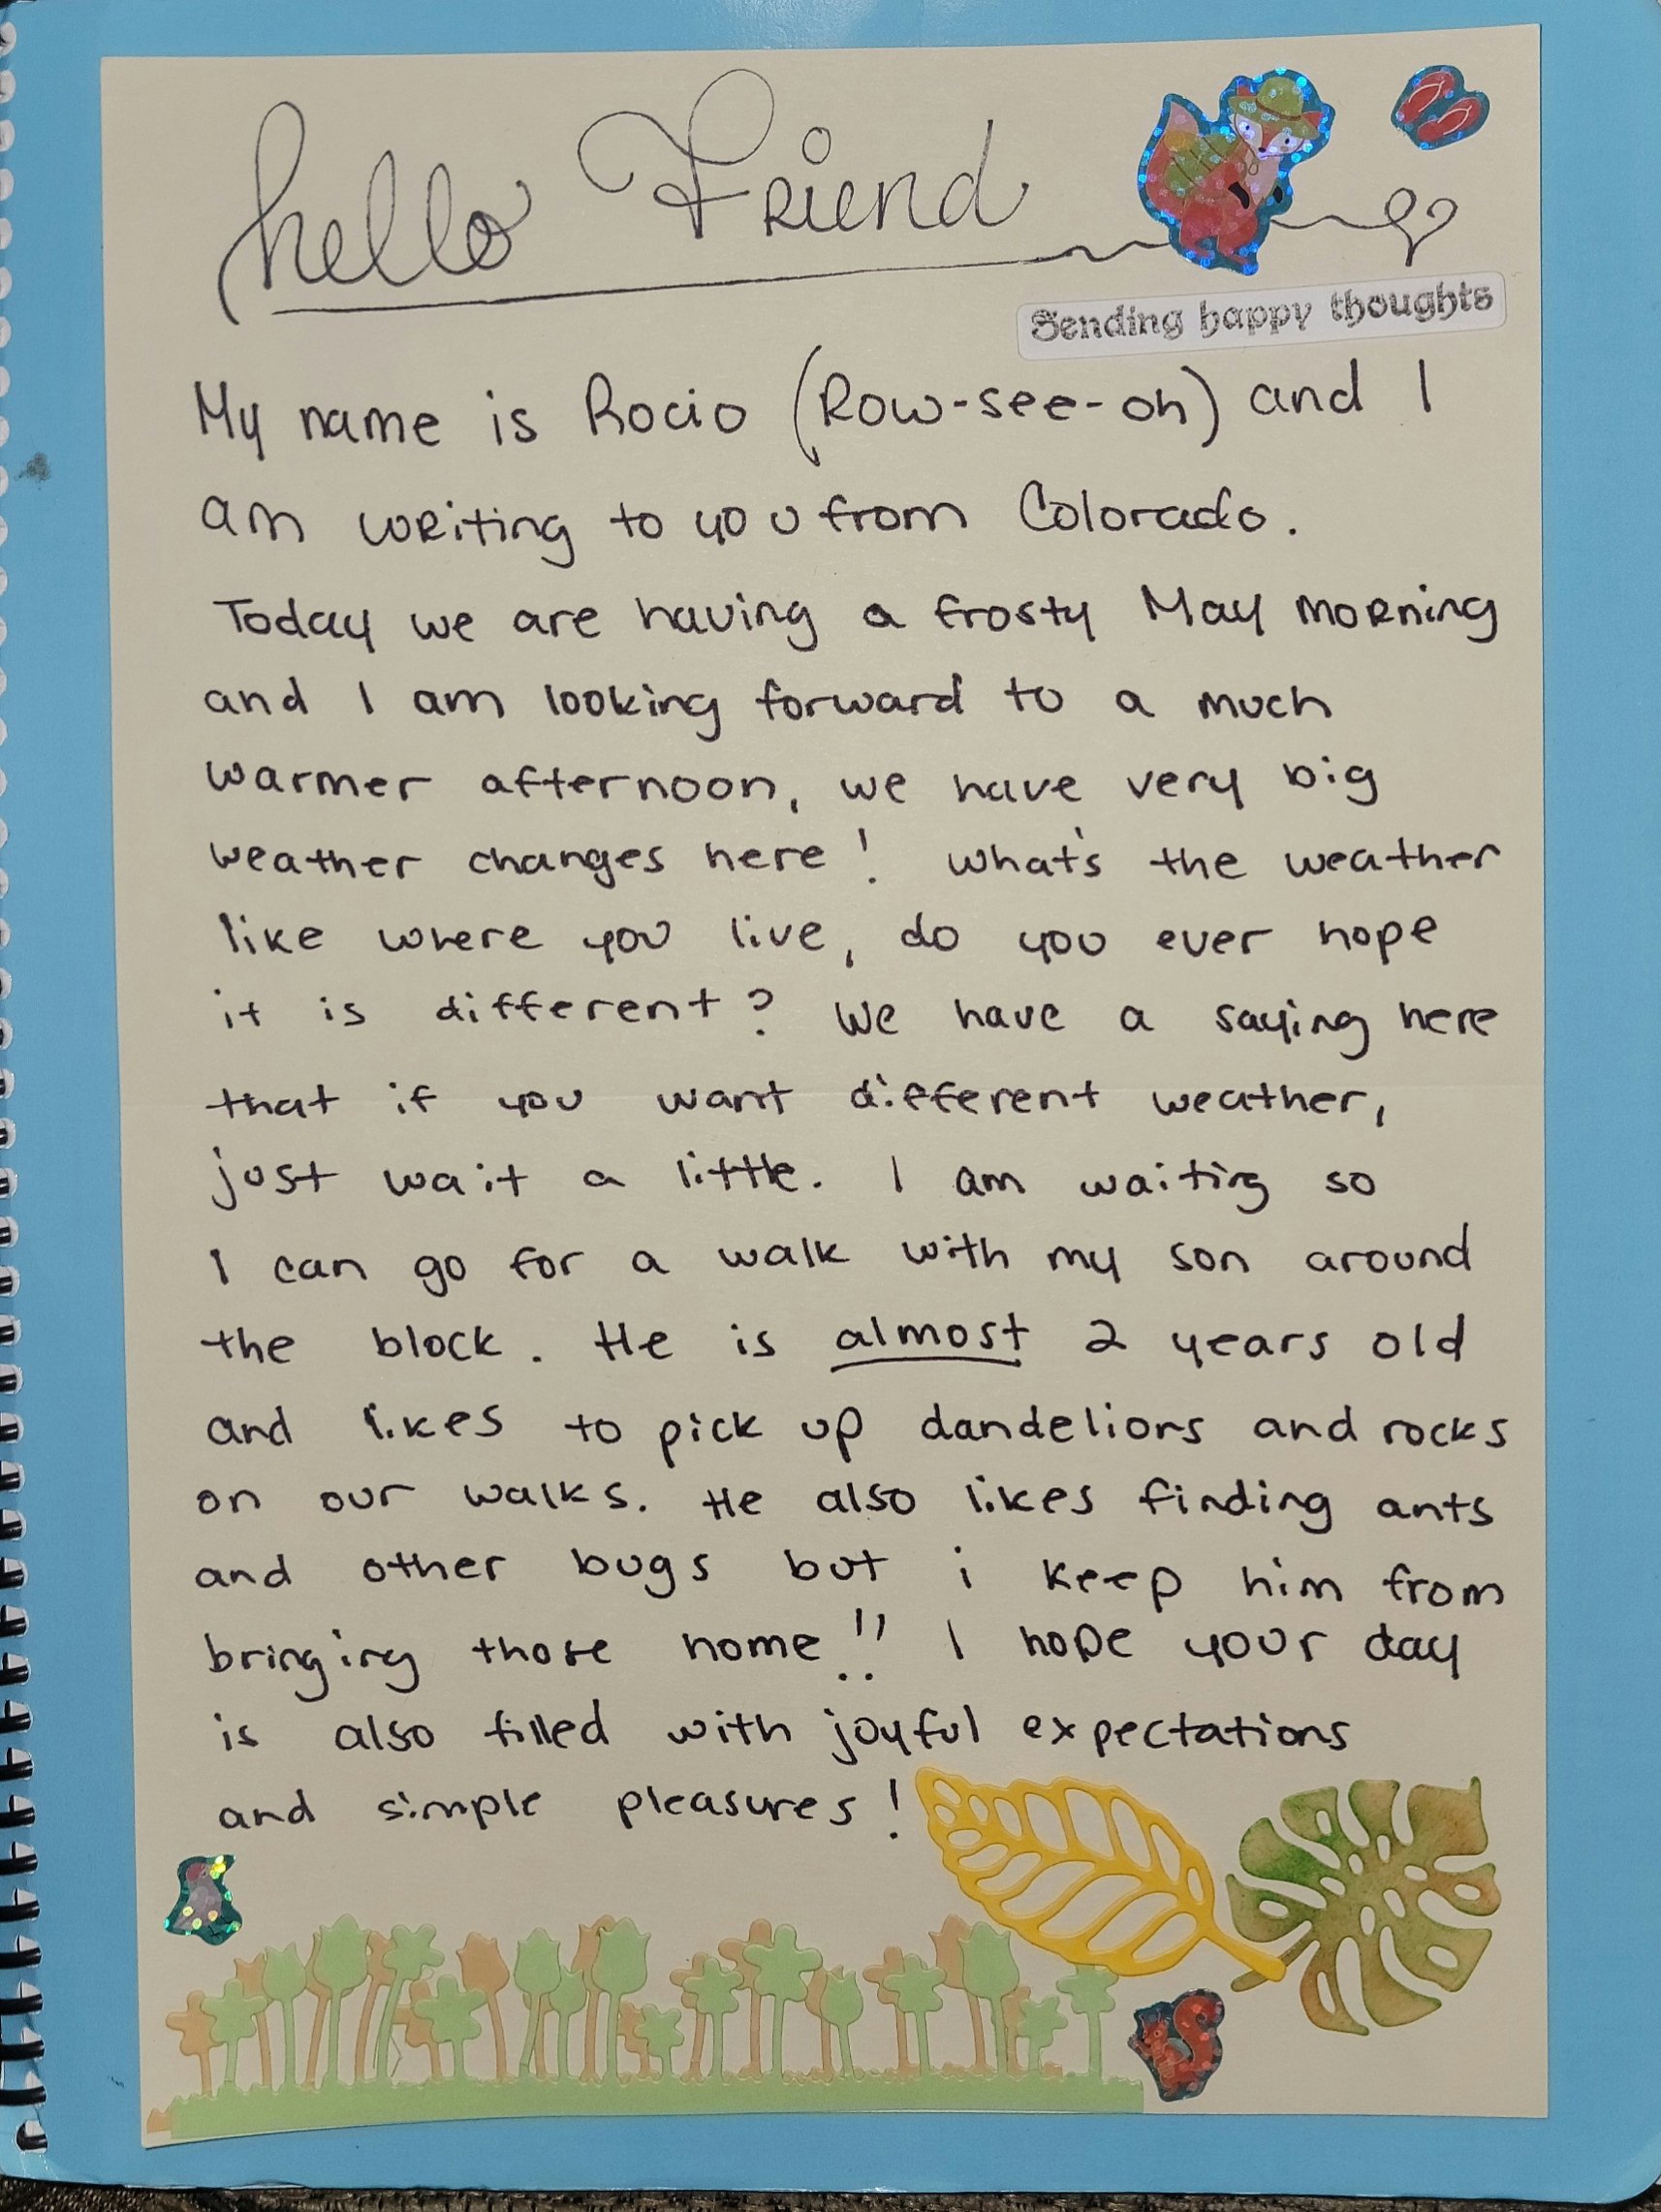 hello Friend
Sending happy thoughts
My name is Rocio (Row-see-oh) and I
am writing to you from Colorado.
Today we are having a frosty May morning
and I am looking forward to a much
warmer afternoon, we have very big
weather changes here! What's the weather
like where you live, do you ever hope
it is different? We have a saying here
that if you want different weather,
just wait a little. I am waiting so
I can go for a walk with my son around
the block. He is almost 2 years old
and likes to pick up dandelions and rocks
on our walks. He also likes finding ants
and other bugs but i keep him from
bringing those home!! I hope your day
is also filled with joyful expectations
and simple pleasures!